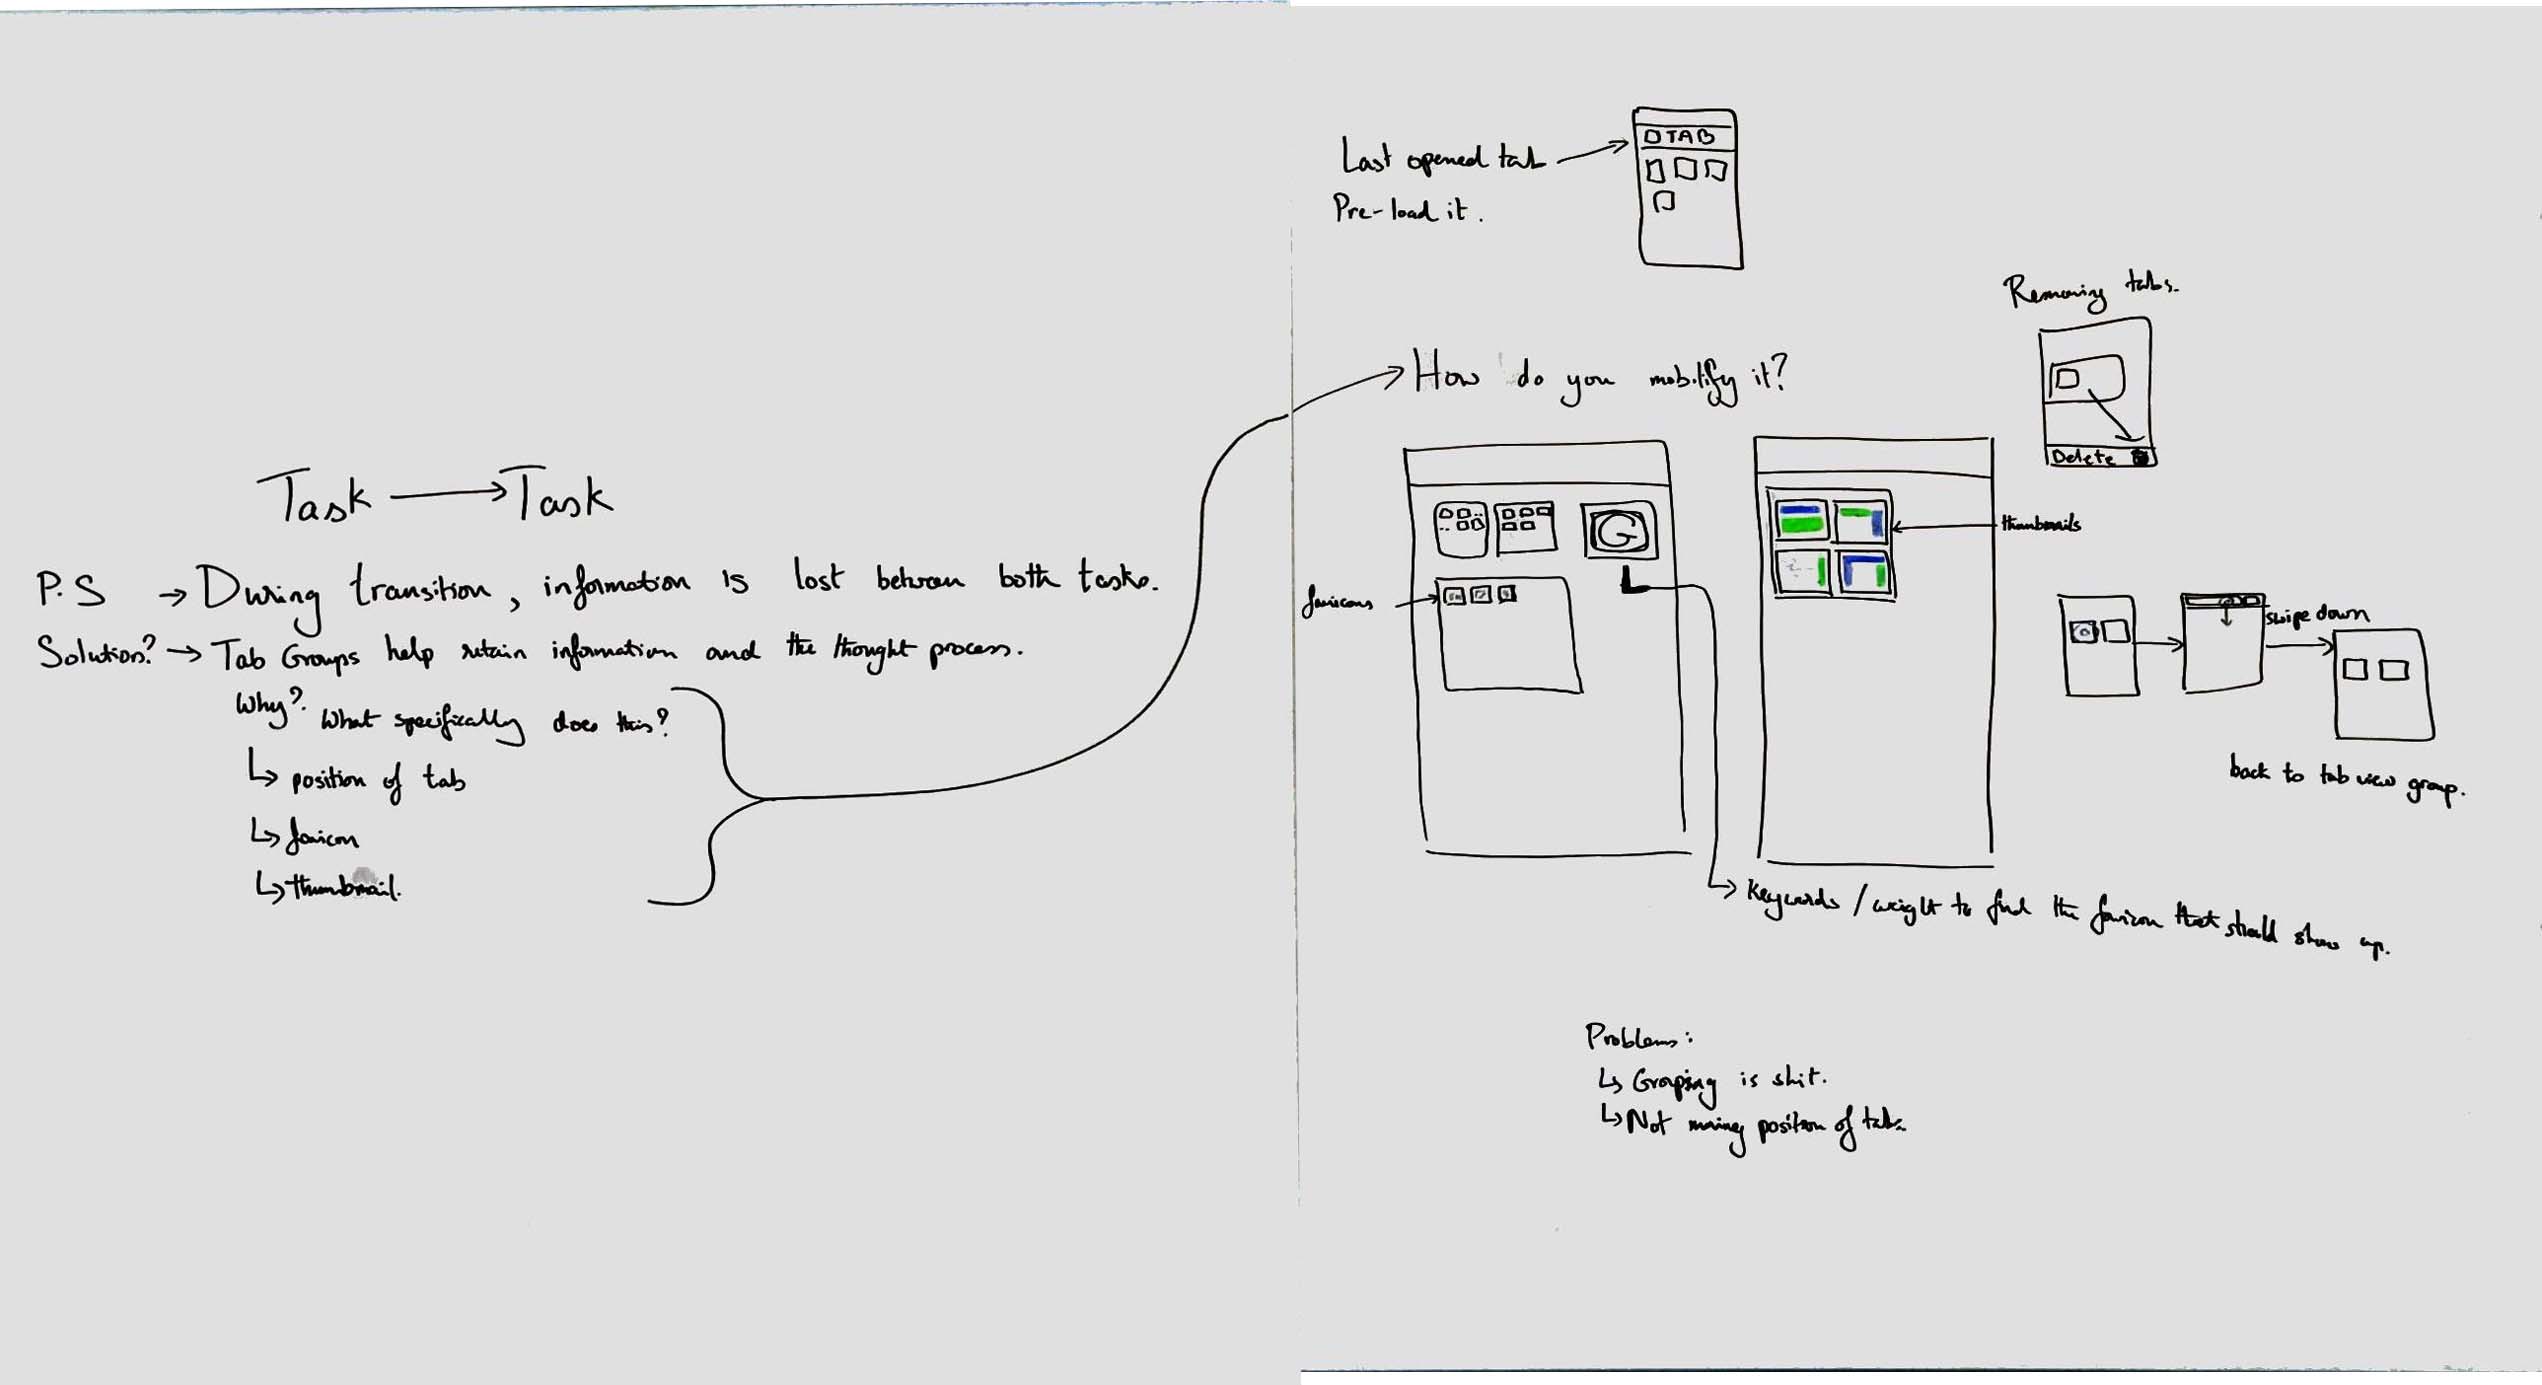 Task → Task
P.S → During transition, information is lost between both tasks.
Solution? → Tab Groups help retain information and the thought process.
Why? What specifically does this?
↳ position of tab
↳ favicon
↳ thumbnail.
Last opened tab
Pre-load it.
TAB
Removing tabs.
Delete
How do you mobilify it?
G
favicons
thumbnails
swipe down
back to tab view group.
Keywords / weight to find the favicon that should show up.
Problems:
↳ Grouping is shit.
↳ Not position of tabs.